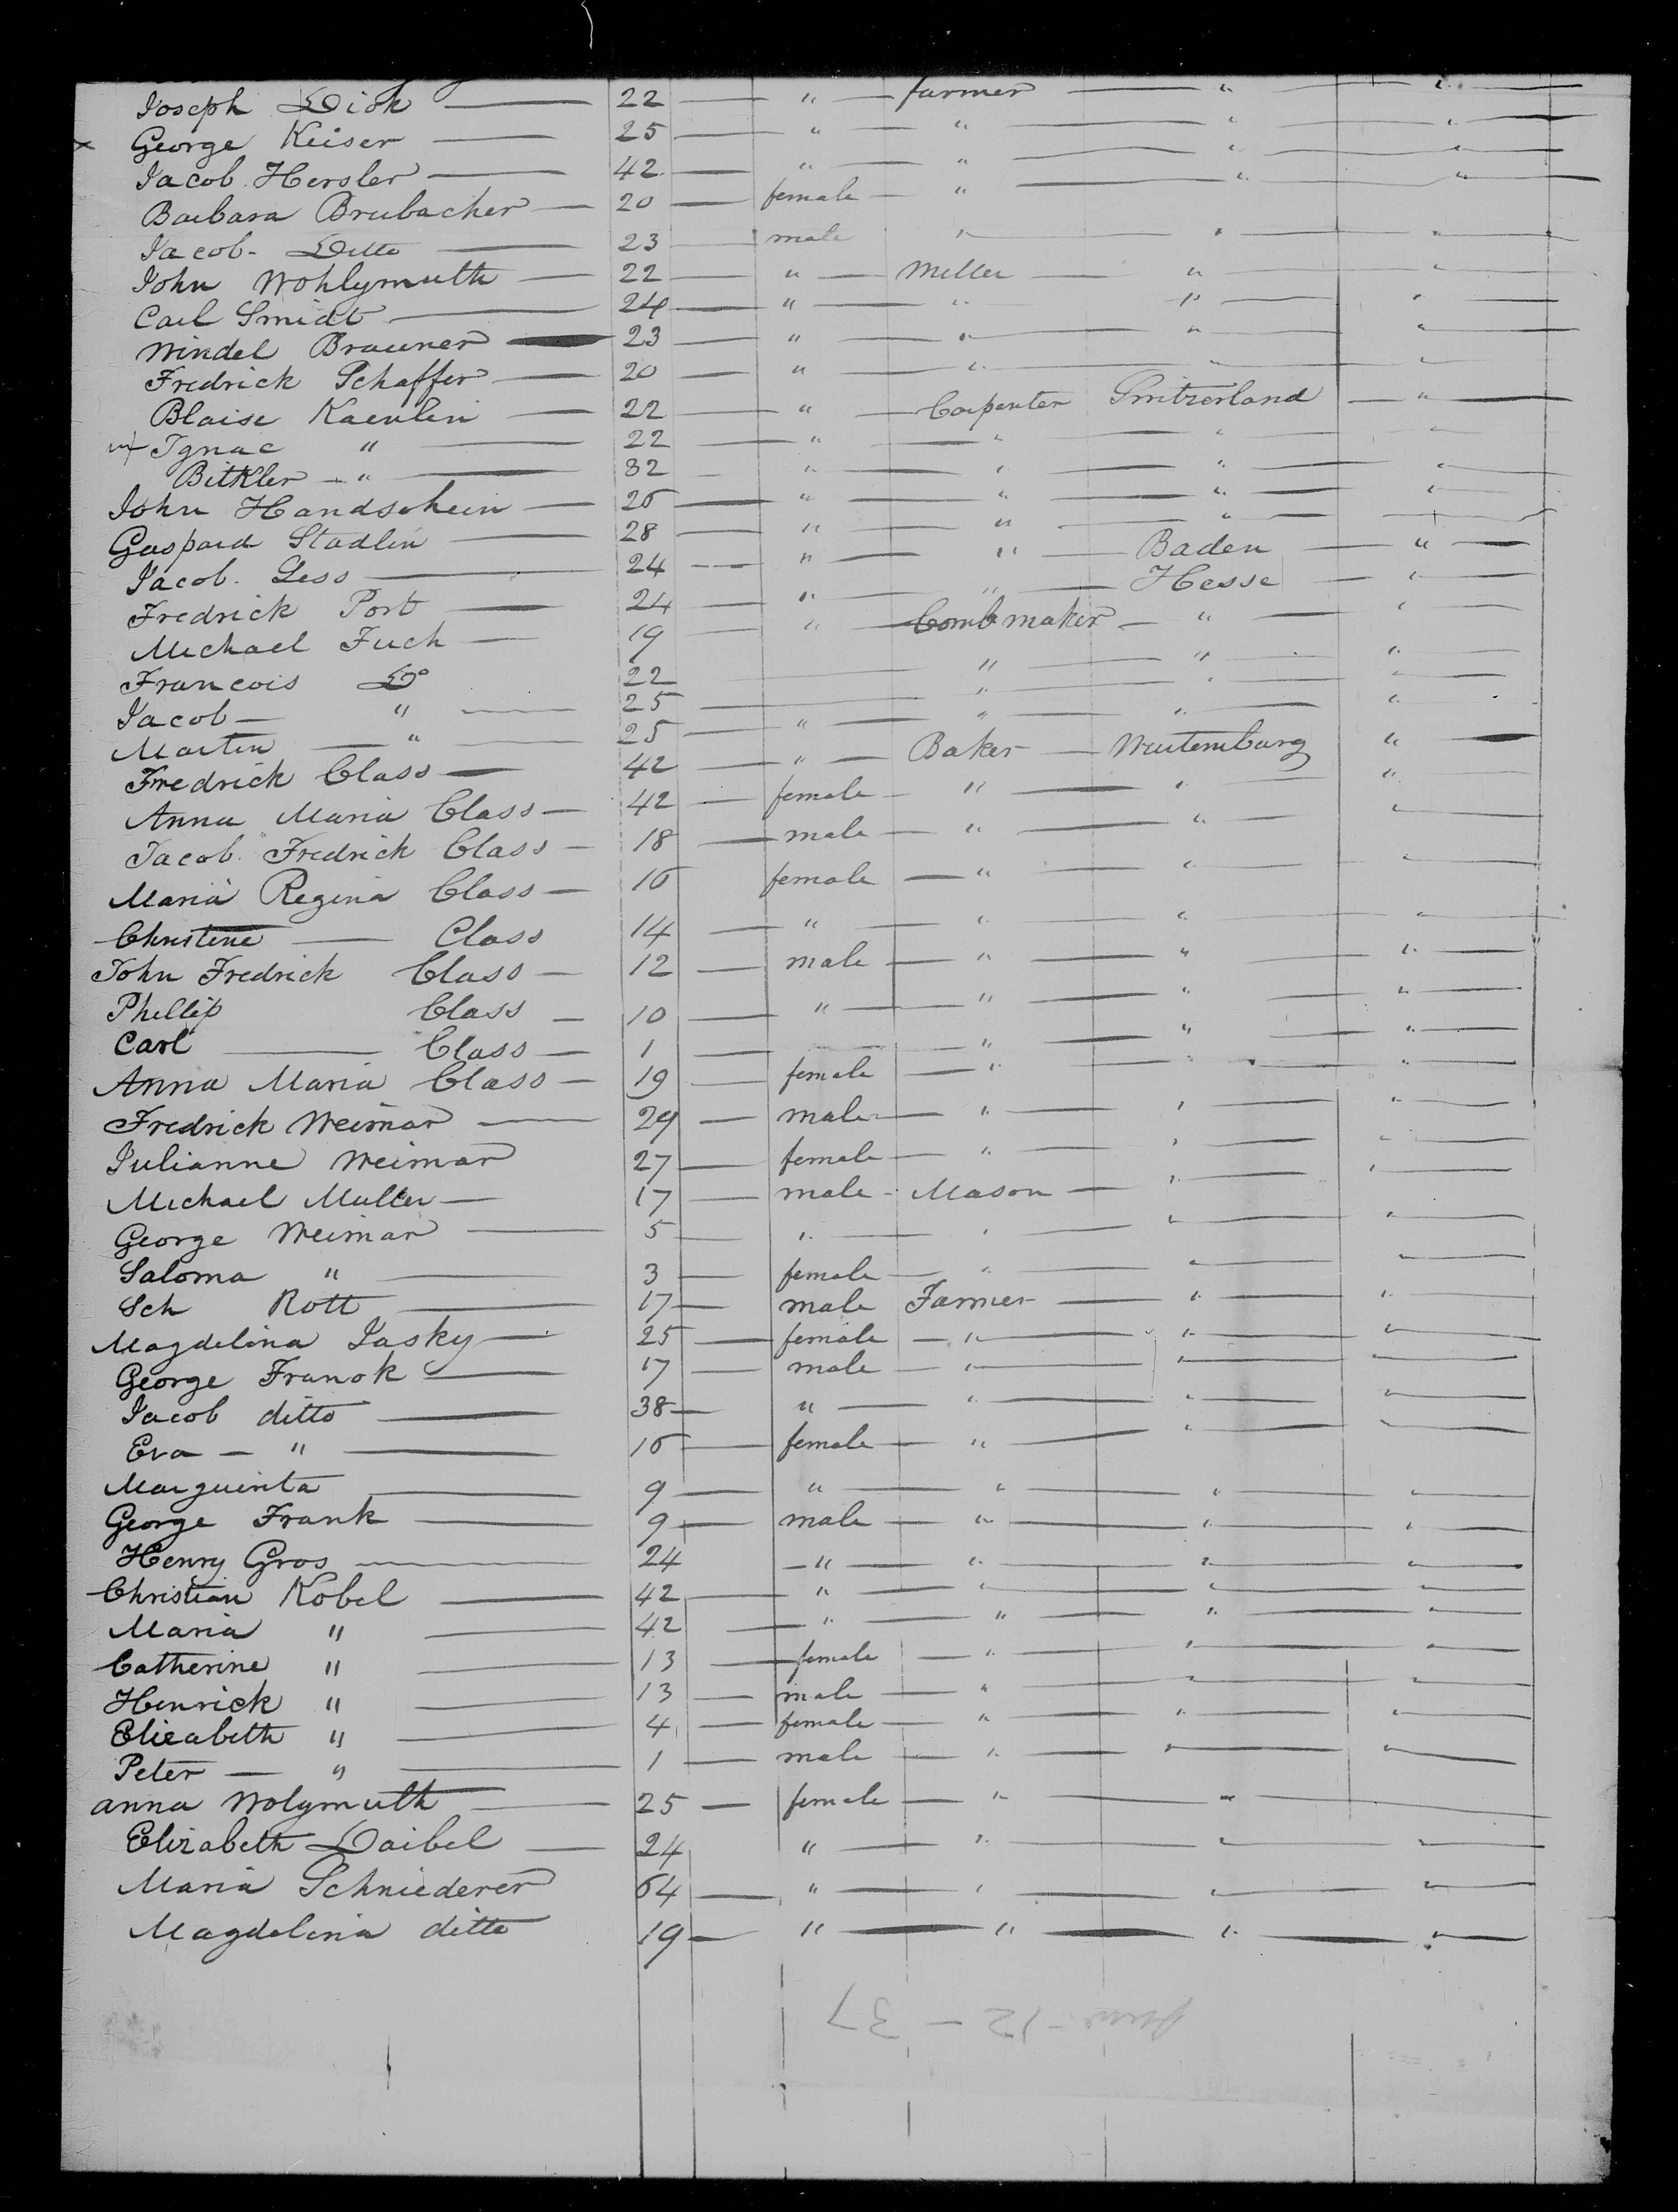 Joseph Dick — 22 — " — farmer — " — "
x George Keiser — 25 — " — " — " — "
Jacob Hersler — 42 — " — " — " — "
Barbara Brubacher — 20 — female — " — " — "
Jacob - Ditto — 23 — male " " "
John Wohlymuth — 22 — " — Miller — " — "
Carl Smidt — 24 — " — " — " — "
Windel Brauner — 23 — " — " — " — "
Fredrick Schaffer — 20 — " — " — " — "
Blaise Kaenlin — 22 — " — Carpenter Switzerland — " —
Ignac " — 22 — " — " — " — "
Bitkler — " — 32 — " — " — " — "
John Handschein — 26 — " — " — " — "
Gaspard Stadlin — 28 — " — " — " —
Jacob. Gess — 24 — " — " — Baden — " —
Fredrick Port — 24 — " — " — Hesse — " —
Michael Fuch — 19 — " — Comb maker — " — "
Francois Do 22 — " — " — "
Jacob — " — 25 — " — " — "
Martin — " — 25 — " — " — " — "
Fredrick Class — 42 — " — Baker — Wurtemburg " —
Anna Maria Class — 42 — female — " — " — "
Jacob Fredrick Class — 18 — male — " — " — "
Maria Regina Class — 16 female — " — " — "
Christine — Class 14 — " — " — " — "
John Fredrick Class — 12 — male — " — " — "
Phillip Class — 10 — " — " — " — "
Carl — Class — 1 — " — " — "
Anna Maria Class — 19 — female — " — " — "
Fredrick Weimar — 29 — male — " — " — "
Julianne Weimar 27 — female — " — " — "
Michael Muller — 17 — male - Mason — " — "
George Weimar — 5 — " — " — " — "
Saloma " — 3 — female — " — " — "
Sch Rott — 17 — male Farmer — " — "
Magdelina Jasky — 25 — female — " — " — "
George Franck — 17 — male — " — " — "
Jacob ditto — 38 — " — " — " — "
Eva — " — 16 — female — " — " — "
Marguerita — 9 — " — " — " — "
George Frank — 9 — male — " — " — "
Henry Gros — 24 — " — " — " — "
Christian Kobel — 42 — " — " — " — "
Maria " — 42 — " — " — " — "
Catherine " — 13 — female — " — " — "
Henrick " — 13 — male — " — " — "
Elizabeth " — 4 — female — " — " — "
Peter — " — 1 — male — " — " — "
anna Wolymuth — 25 — female — " — " —
Elizabeth Daibel — 24 " — " — " — "
Maria Schniederer 64 — " — " — " — "
Magdelina ditto 19 — " — " — " — "
12 - 37